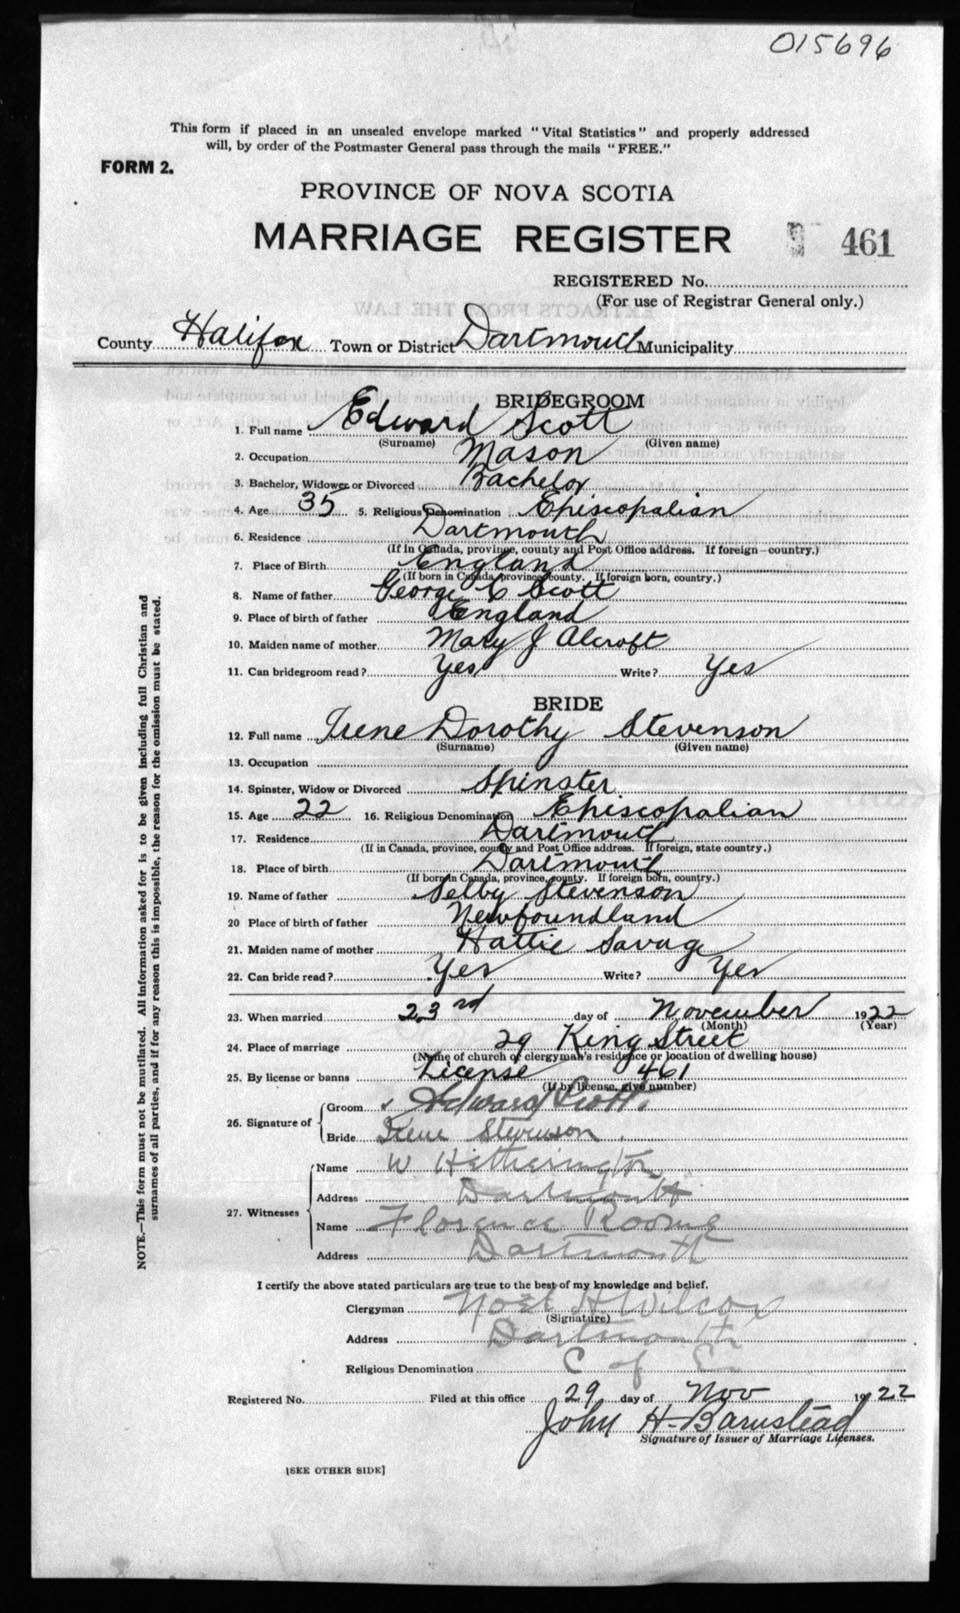 015696
This form if placed in an unsealed envelope marked "Vital Statistics" and properly addressed
will, by order of the Postmaster General pass through the mails "FREE."
FORM 2.
PROVINCE OF NOVA SCOTIA
MARRIAGE REGISTER 461
REGISTERED No.
(For use of Registrar General only.)
County Halifax Town or District Dartmouth Municipality
BRIDEGROOM
1. Full name Edward Scott
(Surname) (Given name)
2. Occupation Mason
3. Bachelor, Widower or Divorced Bachelor
4. Age 35 5. Religious Denomination Episcopalian
6. Residence Dartmouth
(If in Canada, province, county and Post Office address. If foreign—country.)
7. Place of Birth England
(If born in Canada, province, county. If foreign born, country.)
8. Name of father George C Scott
9. Place of birth of father England
10. Maiden name of mother Mary J Alcroft
11. Can bridegroom read? Yes Write? Yes
BRIDE
12. Full name Irene Dorothy Stevenson
(Surname) (Given name)
13. Occupation
14. Spinster, Widow or Divorced Spinster
15. Age 22 16. Religious Denomination Episcopalian
17. Residence Dartmouth
(If in Canada, province, county and Post Office address. If foreign, state country.)
18. Place of birth Dartmouth
(If born in Canada, province, county. If foreign born, country.)
19. Name of father Selby Stevenson
20 Place of birth of father Newfoundland
21. Maiden name of mother Hattie Savage
22. Can bride read? Yes Write? Yes
23. When married 23rd day of November 1922
(Month) (Year)
24. Place of marriage 29 King Street
(Name of church of clergyman's residence or location of dwelling house)
25. By license or banns License 461
(If by license, give number)
26. Signature of Groom Edward Scott.
Bride Irene Stevenson.
27. Witnesses Name W Hetherington
Address Dartmouth
Name Florence Roome
Address Dartmouth
I certify the above stated particulars are true to the best of my knowledge and belief.
Clergyman Noel H Wilcox
(Signature)
Address Dartmouth
Religious Denomination C of E
Registered No. Filed at this office 29 day of Nov 1922
John H. Barnstead
Signature of Issuer of Marriage Licenses.
[SEE OTHER SIDE]
NOTE.—This form must not be mutilated. All information asked for is to be given including full Christian and
surnames of all parties, and if for any reason this is impossible, the reason for the omission must be stated.